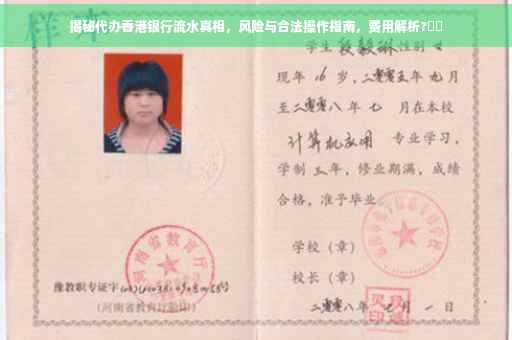 揭秘代办香港银行流水真相，风险与合法操作指南，费用解析?
样本
学生段毅琳性别
现年 16 岁，二零零五年 九月
至二零零八年 七 月在本校
计算机应用 专业学习，
学制 三年，修业期满，成绩
合格，准予毕业。
学校（章）
校长（章）
豫教职专证字
（河南省教育厅验印）
河南省教育厅
二零零八年 七 月 一 日